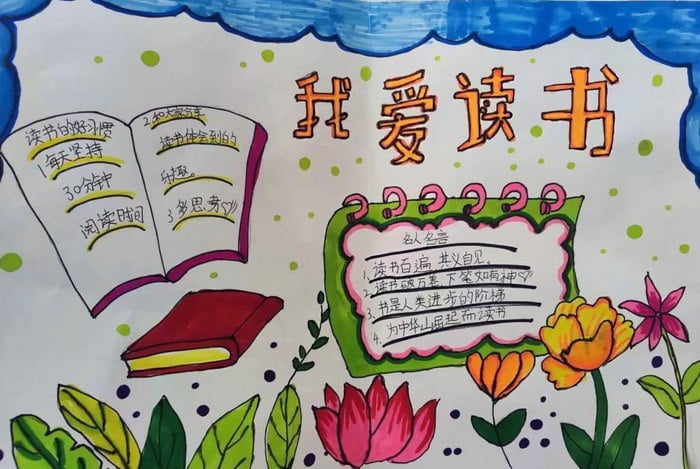 我爱读书
读书的好习惯
1每天坚持
30分钟
阅读时间
2.和大家分享
读书体会到的
乐趣。
3.多思考
名人名言
1.读书百遍,其义自见。
2.读书破万卷,下笔如有神
3.书是人类进步的阶梯
4.为中华山屈起而读书